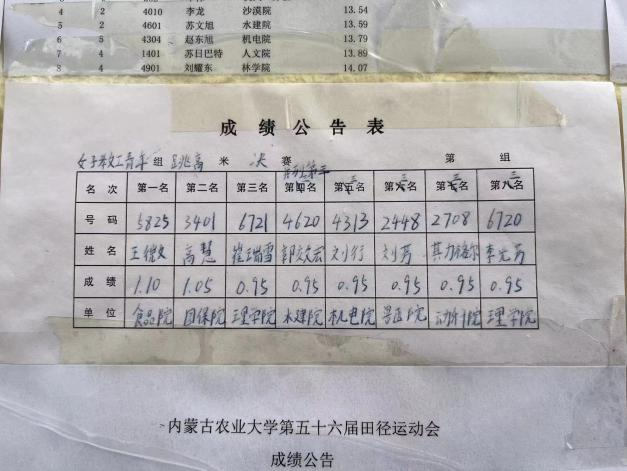 4 2 4010 李龙 沙漠院 13.54
5 2 4601 苏文旭 水建院 13.59
6 5 4304 赵东旭 机电院 13.79
7 4 1401 苏日巴特 人文院 13.89
8 4 4901 刘耀东 林学院 14.07
成绩公告表
女子教工青年组 跳高 米 决 赛 并列第三 第 组
名次 第一名 第二名 第三名 第三名 第三名 第三名 第三名 第三名
号码 5825 3401 6721 4620 4313 2448 2708 6720
姓名 高慧 崔瑞雪 刘行 刘芳
成绩 1.10 1.05 0.95 0.95 0.95 0.95 0.95 0.95
单位 食品院 理学院 水建院 机电院 理学院
内蒙古农业大学第五十六届田径运动会
成绩公告